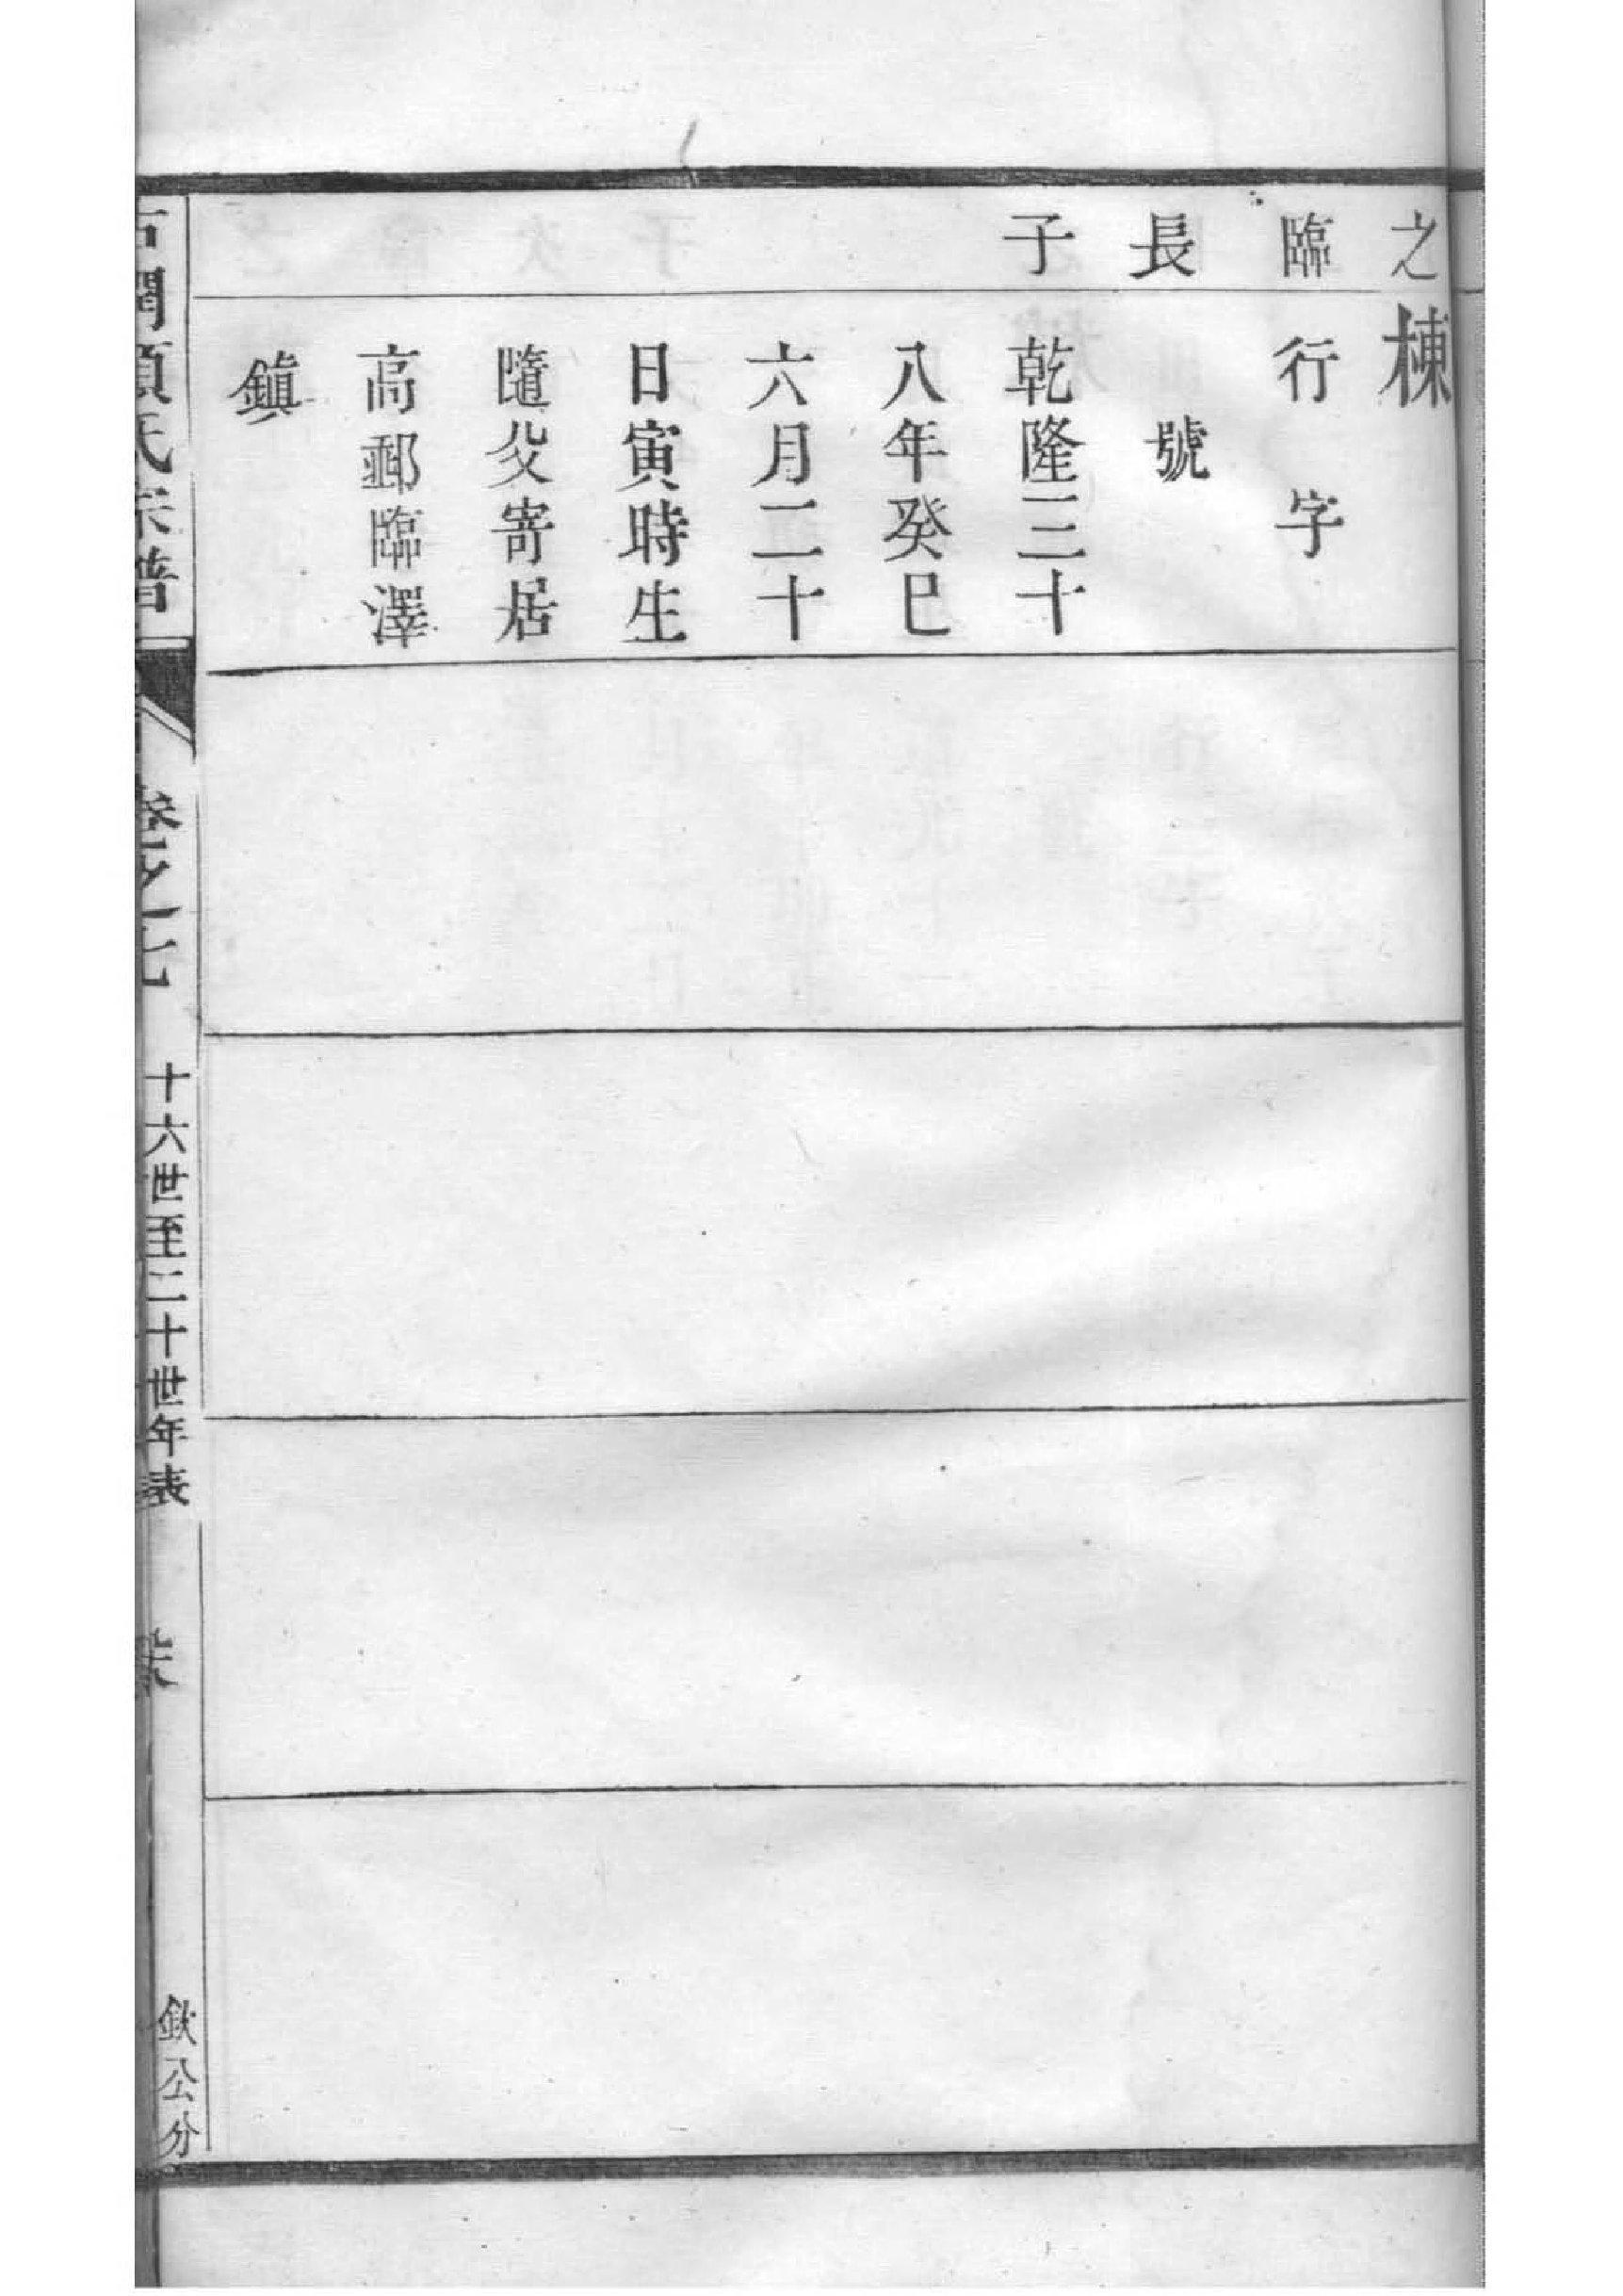 之臨長子
棟
行 字
號
乾隆三十
八年癸巳
六月二十
日寅時生
隨父寄居
高郵臨澤
鎮
項氏宗譜
卷之
十六世至二十世年表
欽公分